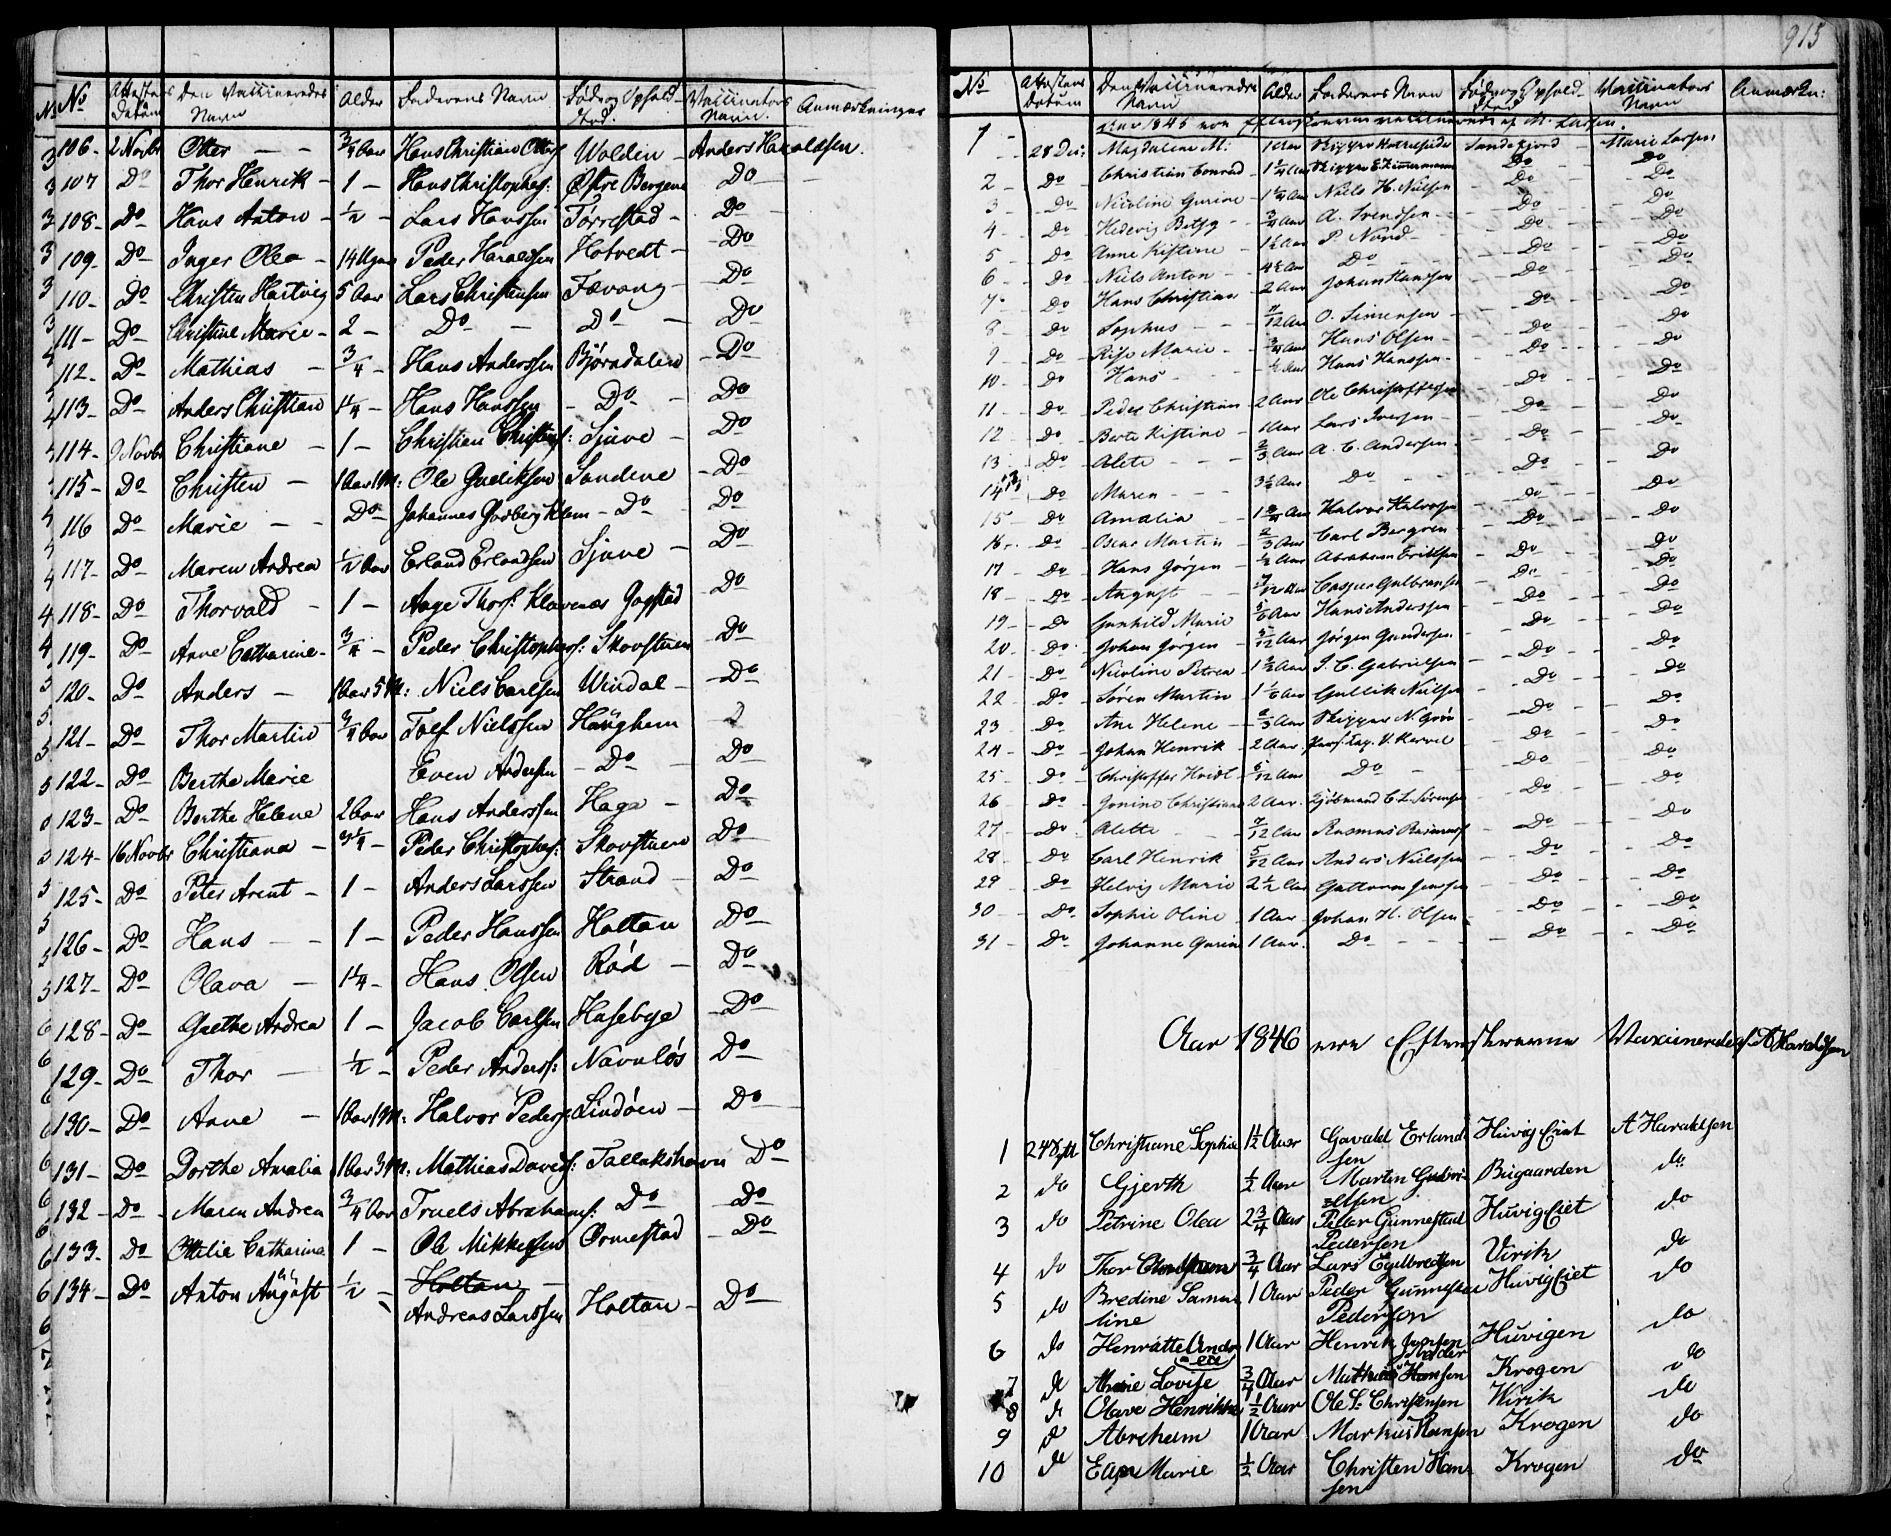 No Attestens Datum Den Vaccineredes Navn Alder Faderens Navn Føde og Ophold Sted. Vaccinators Navn. Anmærkninger
106 - 2 Novbr Otter - - 3/4 Aar Hans Christian Otters Wolden - Anders Haraldsen.
107 Do Thor Henrik - 1 - Hans Christophes: Østre Bergene Do -
108 - Do Hans Anton - 1/2 - Lars Hanssen Torrestad - Do -
109 - Do Inger Olea - 14 Ugers Peder Haraldsen Hotvedt - Do
110 - Do Christen Hartvig 5 Aar Lars Christensen Fevang - Do
111 - Do Christine Marie - 2 - Do - Do - Do
112 - Do Mathias - 3/4 - Hans Anderssen Bjørndalen - Do
113 - Do Anders Christian 1 1/4 - Hans Hanssen - Do - Do
114 - 9 Novbr Christiane - 1 - Christian Christens: Sjuve - Do
115 - Do Christen - 1 Aar 1 M: Ole Gulliksen Sandene - Do
116 Do Marie - - Do - Johannes Godberg Klem - Do Do
117 - Do Maren Andrea 1/2 Aar Erland Erlandsen Sjuve - Do
118 - Do Thorvald - 1 - Aage Thors: Klavenæs Gogstad Do
119 - Do Anne Catharine - 3/4 - Peder Christophers: Skovstuen Do
120 - Do Anders - 1 Aar 5 M: Niels Carlsen Windal - Do
121 - Do Thor Martin 3/4 Aar Tolf Nielssen Haughem
122 - Do Berthe Marie Even Andersen - Do - Do
123 - Do Berthe Helene 2 Aar Hans Anderssen Haga - Do
124 - 16 Novbr Christiana - 3 1/4 - Peder Christophes: Skovstuen Do
125 - Do Peter Arent - 1 - Anders Larssen Strand - Do
126 - Do Hans - - 1 - Peder Hanssen Holtan Do
127 - Do Olava - 1 1/4 - Hans Olsen Rød - Do
128 - Do Grethe Andrea 1 - Jacob Carlsen Hasebye - Do
129 - Do Thor - 1/2 - Peder Anderss: Navnløs Do
130 - Do Anne - 1 Aar 1 M: Halvor Peders: Lindøen - Do -
131 - Do Dorthe Amalia 1 Aar 3 M: Mathias Davids: Tallakshavn Do
132 - Do - Maren Andrea 3/4 Aar Truels Abrahams: Do Do
133 - Do Ottilie Catharine 1 - Ole Mikkelsen Ormestad - Do
134 - Do Anton August 1/2 - Holtan -
Andreas Larssen Holtan - Do
915
No Attestens Datum Den Vaccineredes Navn Alder Faderens Navn Føde og Ophold Sted Vaccinators Navn Anmærkn:
Aar 1845 ere efterskrevne vaccinerede af M. Larsen.
1 - 28 Dec: Magdalene M: 1 Aar Skipper Sandefiord - Marie Larsen
2 - Do Christian Conrad - 1 1/4 Aar Skipper E Zimmermann Do Do
3 - Do Nicoline Gurine - 1 1/4 Aar Niels H. Nielsen Do Do
4 - Do Hedevig Betsy - 3/4 Aar A. Svendsen - Do Do
5 - Do Anne Kistine - 1 1/2 Aar P. Nord - Do Do
6 - Do Niels Anton - 4 1/2 Aar Do - Do Do
7 - Do Hans Christian 2 Aar Johan Hanssen Do Do
8 - Do Sophus - - 7/12 Aar O. Simensen - Do Do
9 - Do Rise Marie - 3/4 Aar Hans Olsen - Do Do
10 - Do Hans - - 1/2 Aar Hans Hanssen - Do Do
11 - Do Peder Christian - 2 Aar Ole Christoffersen Do Do
12 - Do Berte Kistine - 1 Aar Lars Iversen - Do Do
13 Do Alete - - 2/3 Aar A. C. Andersen - Do Do
14 Do Maren - - 3 1/2 Aar Do - Do Do
15 - Do Amalia - 1 3/4 Aar Halvor Halvorsen Do Do
16 - Do Oscar Martin - 2/3 Aar Carl Bergren - Do Do
17 - Do Hans Jørgen - 1/2 Aar Abraham Erichsen Do Do
18 - Do August - 7/12 Aar Casper Gulbransen Do Do
19 - Do Gunhild Marie 5/6 Aar Hans Anderssen - Do Do
20 - Do Johan Jørgen - 5/12 Aar Jørgen Gundersen Do Do
21 - Do Nicoline Petrea - 1 1/2 Aar J. C. Gabrielsen - Do Do
22 - Do Søren Martin 1 1/6 Aar Gullik Nielsen Do Do
23 - Do Ane Helene - 2/3 Aar Skipper N. Grøn Do Do
24 - Do Johan Henrik - 2 Aar Do Do
25 - Do Christoffer Hvidt 5/12 Aar Do - Do Do
26 - Do Jonine Christiane 2 Aar. Kjøbmand C. L. Sørensen Do Do
27 - Do Alette - 7/12 Aar Rasmus Rasmuss Do Do
28 - Do Carl Henrik 5/12 Aar Anders Nielssen Do Do
29 - Do Helvig Marie 2 1/2 Aar Guttorm Jenssen Do Do
30 - Do Sophie Oline - 1 Aar Johan H. Olsen Do Do
31 - Do Johanne Gurin 1 Aar. Do - - Do Do
Aar 1846 ere Efterskrevne Vaxinerede af A Haraldsen
1 24 Sept Christiane Sophie 1 1/2 Aar Gavald Erland- Huvig Eiet A Haraldsen
sen
2 do Gjerth 1/2 Aar Martin Gudbr- Bugaarden do
eltsen
3 do Petrine Olea 2 3/4 Aar Peter Gunnestad Huvig Eiet do
Pedersen
4 do Thor Christian 3/4 Aar Lars Engelbretsen Virik do
5 do Bredine Samue 1 Aar Peder Gunnestad Huvig Eiet do
line Pedersen
6 do Henriatte Andr- 1 Aar Henrik Jansen Huvigen do
ea
7 do Marie Lovise 3/4 Aar Mathias Hansen Krogen do
8 do Olave Henrikke 1/2 Aar Ole L. Christensen Wirik do
9 do Abreham 1 Aar Markus Hansen Krogen do
10 do Elise Marie 1/2 Aar Christen Han Krogen do
sen